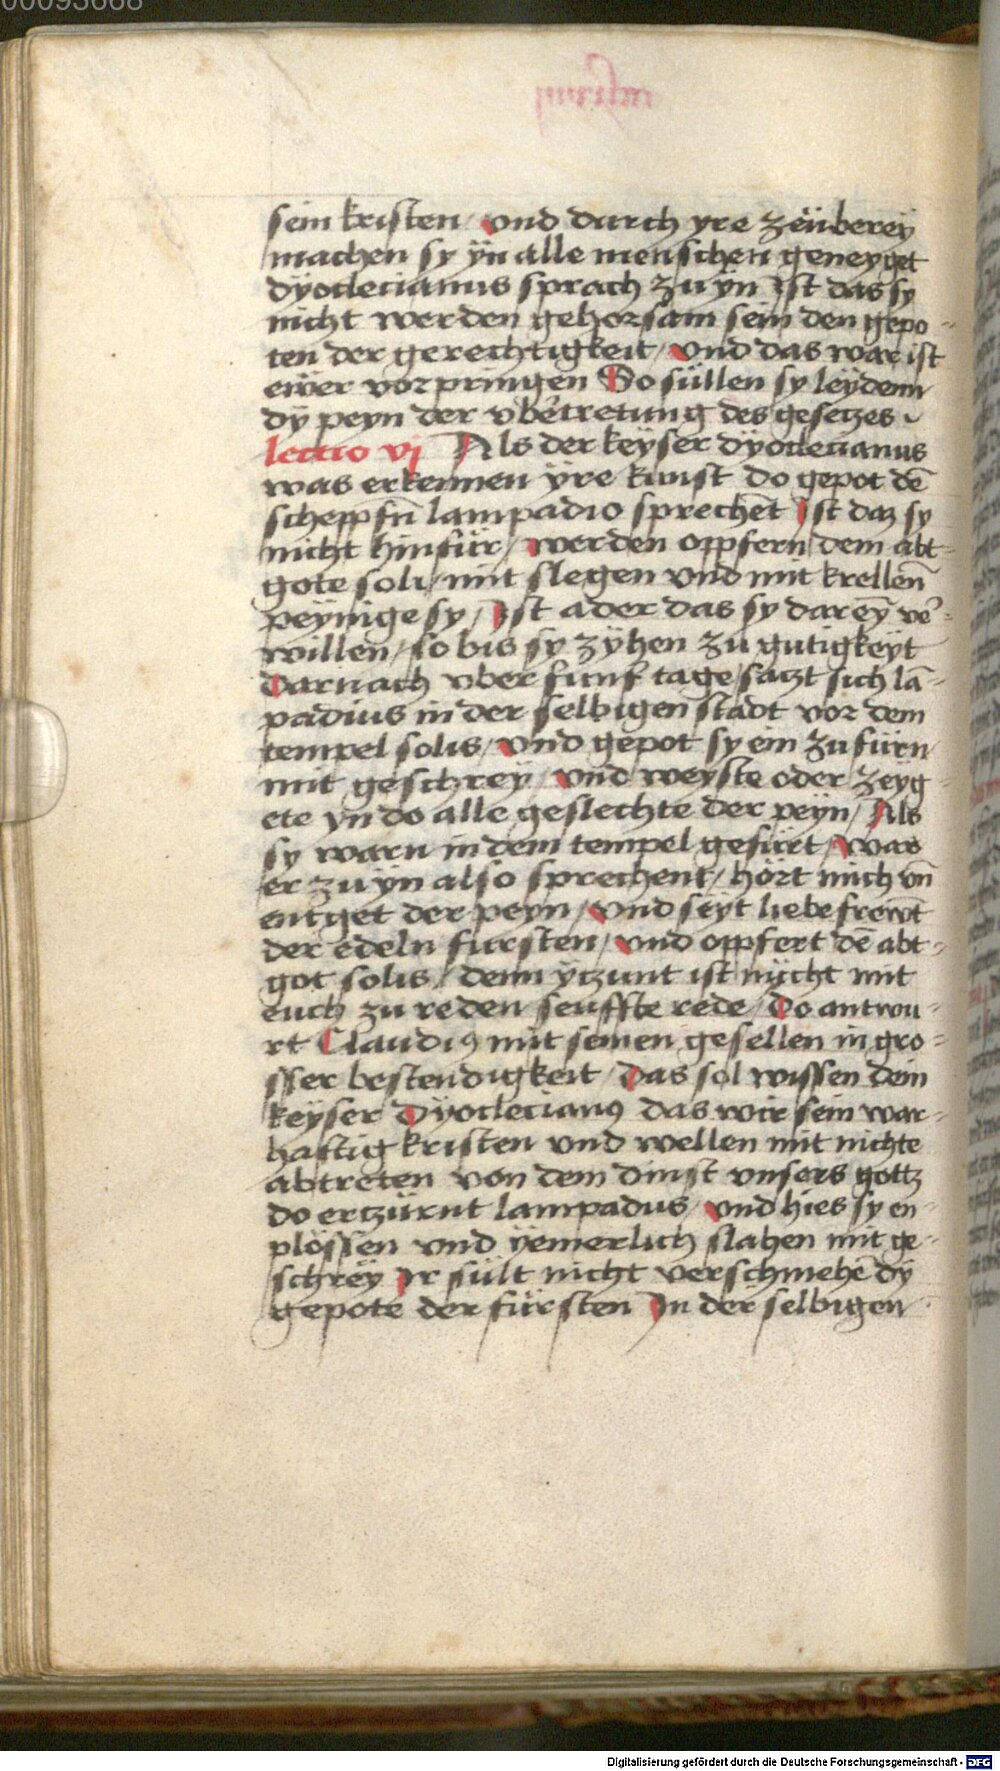 00093668
sein kristen / vnd durch yre zeüberey
machen sy ÿn alle menschen geneyget
dyoclecianus sprach zu yn Ist das sy
nicht werden gehorsam sein den gepo-
ten der gerechtigkeit / vnd das war ist
ewer vorpringen So süllen sy leydenn
dy peyn der vbertretung des gesetzes
lectio vj Als der keyser dyoclecianus
was erkennen yre kunst do gepot dē
scheppfn̄ lampadio sprechēt Ist daz sy
nicht hinfür / werden oppfern dem abt-
gote soli / mit slegen vnd mit krellen̄
peynige sy / Ist ader das sy darey̅ ve-
willen / so bis sy zyhen zu gutigkeyt
Darnach vber funf tage satzt sich la̅-
padius in der selbigen stadt vor dem
tempel solis / vnd gepot sy ein zu fürn
mit geschrey / vnd weyste oder zeyg
ete yn do alle geslechte der peyn / Als
sy warn in dem tempel gefürt / was
er zu yn also sprechent / hört mich vn̄
entget der peyn / vnd seyt liebe frewt
der edeln fursten / vnd oppfert dē abt-
got solis / denn ytzunt ist nicht mit
euch zu reden seuffte rede / Do antwu-
rt Claudiꝰ mit seinen gesellen in gro-
sser bestendigkeit / Das sol wissen dein
keyser Dyoclecianꝰ das wir sein war-
haftig kristen vnd wellen mit nichte
abtreten von dem dinst vnsers gottz
do erzürnt lampadus / vnd hies sy en-
plössen vnd yemerlich slahen mit ge-
schrey Ir sült nicht verschmehē dy
gepote der fürsten In der selbigen
Digitalisierung gefördert durch die Deutsche Forschungsgemeinschaft - DFG